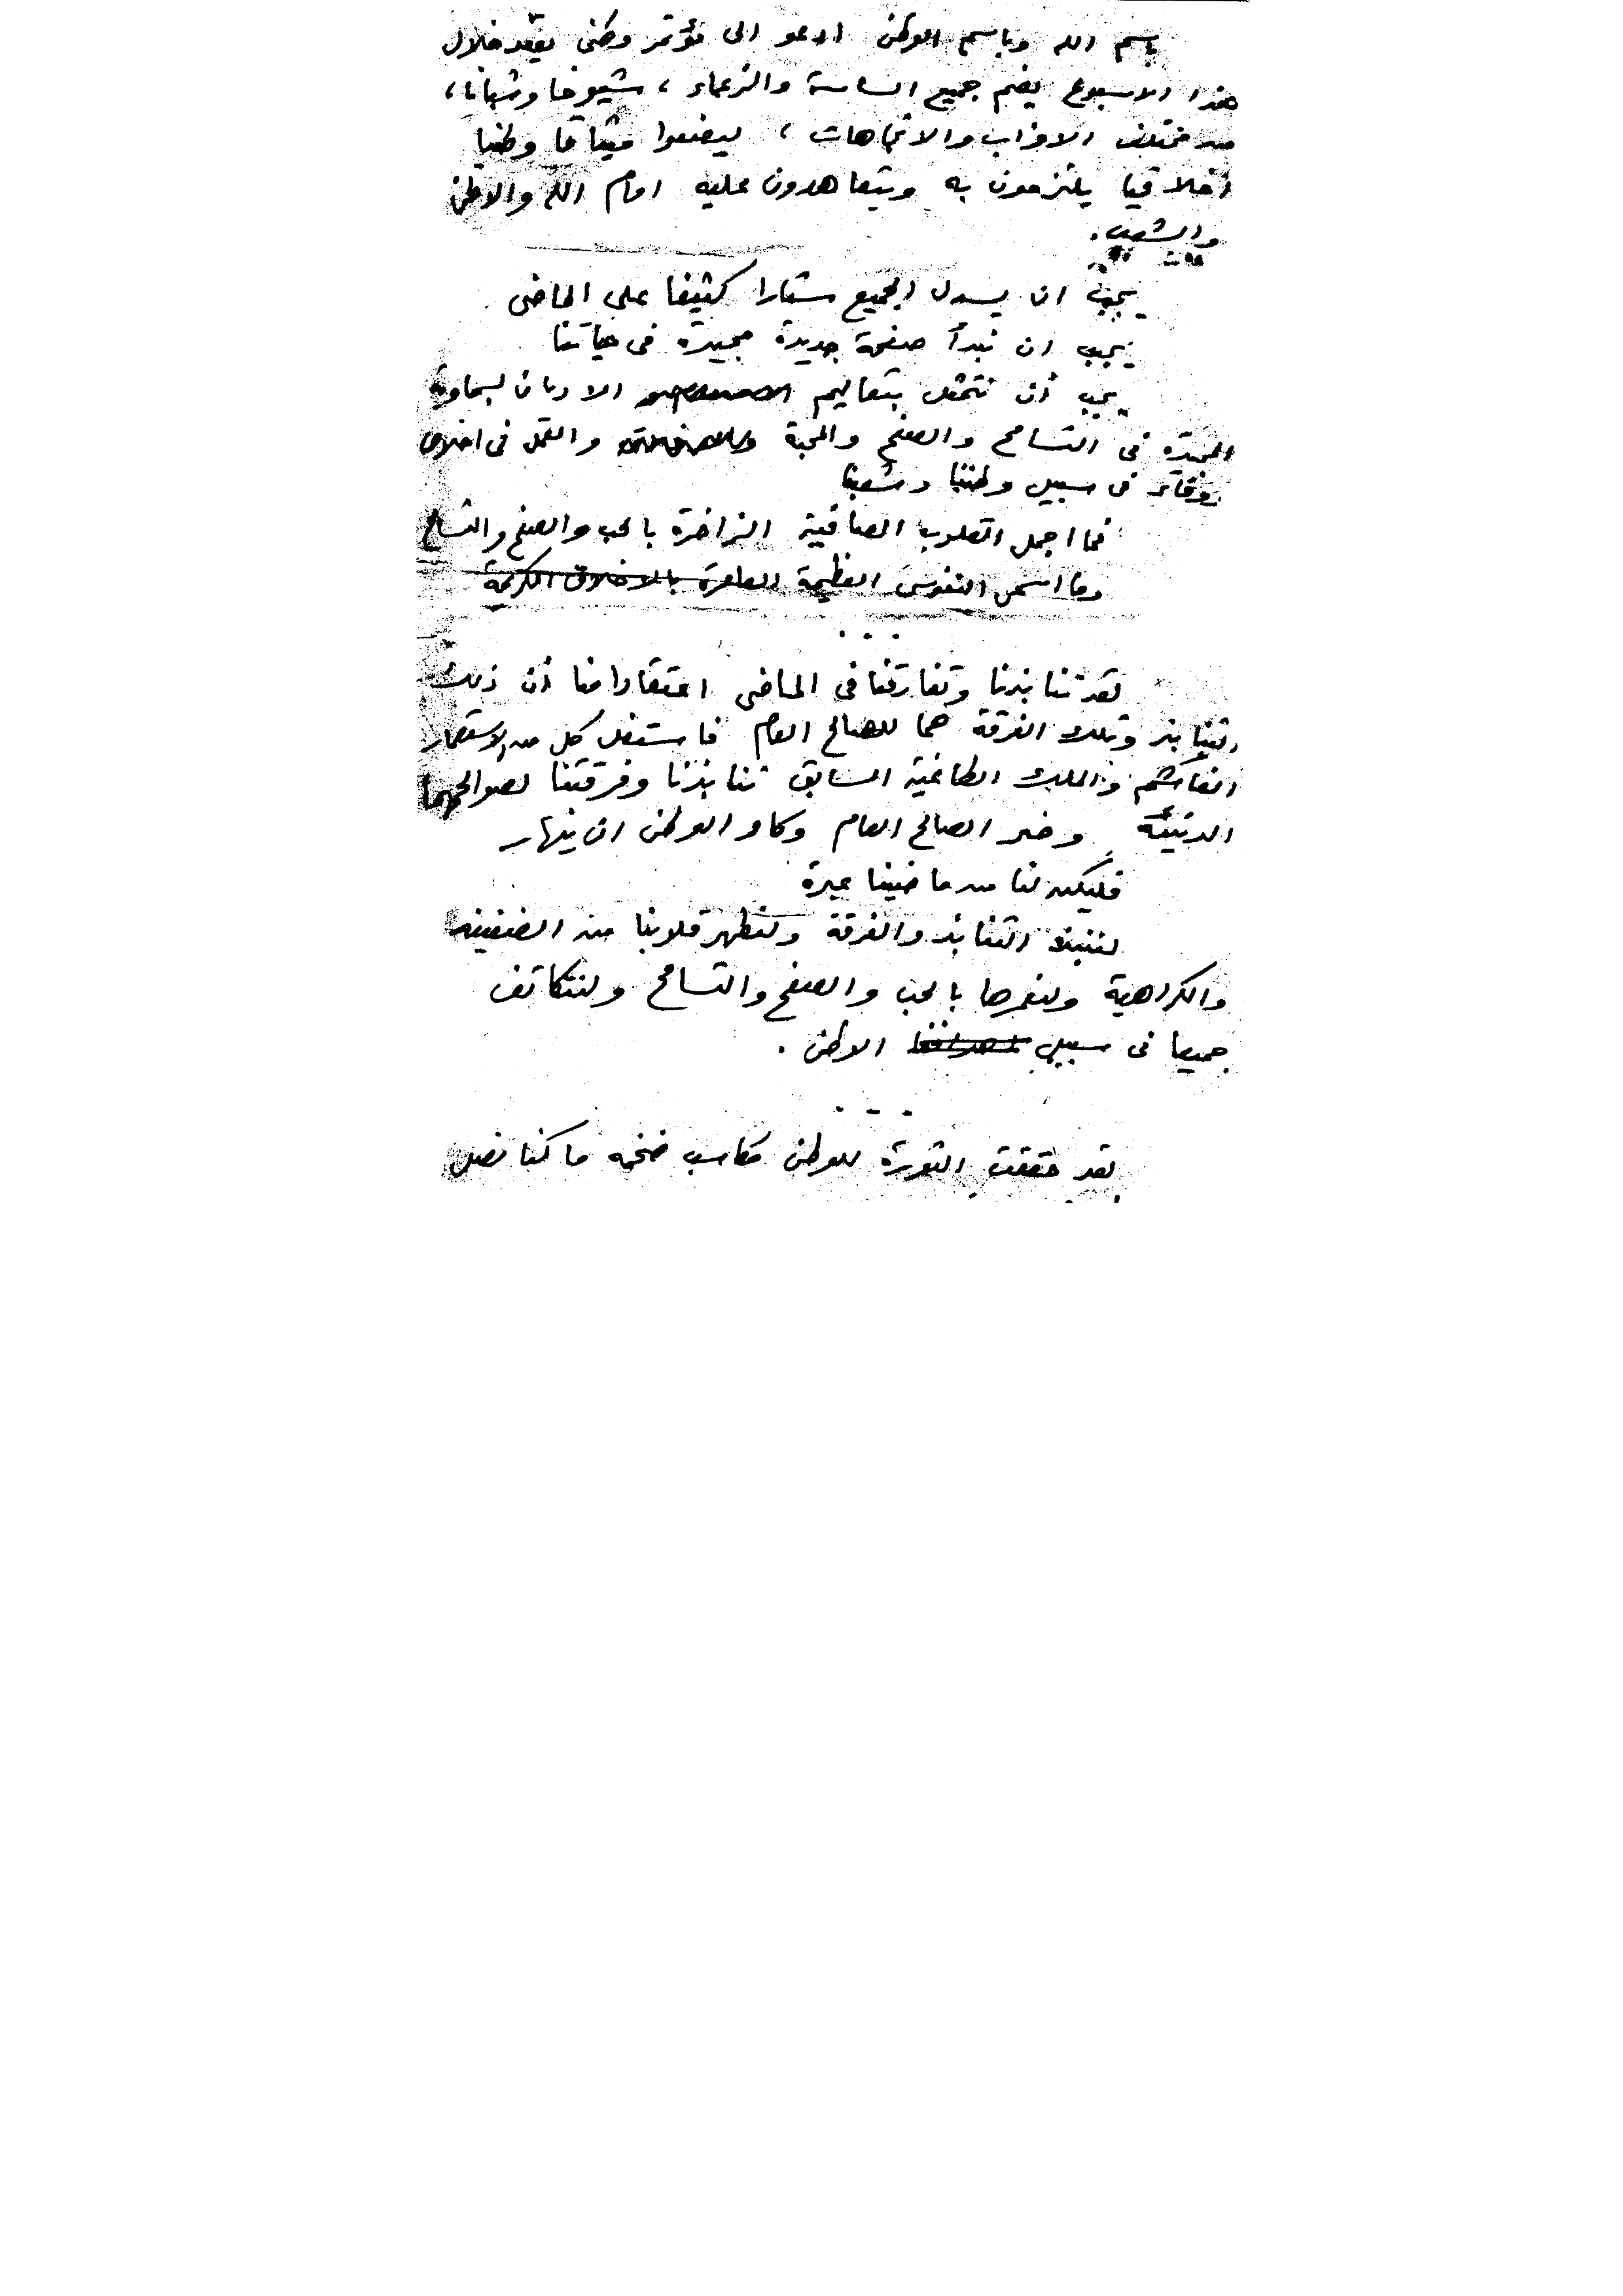 باسم الله وباسم الوطن ادعو الى مؤتمر وطنى يعقد خلال
هذا الاسبوع يضم جميع الساسة والزعماء ، شيوخا وشبانا ،
من مختلف الاحزاب والاتجاهات ، ليضعوا ميثاقا وطنيا
أخلاقيا يلتزمون به ويتعاهدون عليه امام الله والوطن
والشعب .
يجب ان يسدل الجميع ستارا كثيفا على الماضى
يجب ان نبدأ صفحة جديدة مجيدة فى حياتنا
يجب أن نتمثل بتعاليم الاديان السماوية
فى التسامح والصفح والمحبة والعمل فى اخلاص
فى سبيل وطننا وشعبنا
فما اجمل القلوب الصافية الزاخرة بالحب والصفح والتسامح
وما اسمى النفوس العظيمة العامرة بالاخلاق الكريمة
. . .
لقد تنابذنا وتفارقنا فى الماضى اعتقادا منا أن ذلك
التنابذ وتلك الفرقة هما للصالح العام فاستغل كل من الاستعمار
الغاشم والملك الطاغية السابق تنابذنا وفرقتنا لصوالحهما
الدنيئة وخسر الصالح العام وكاد الوطن ان ينهار
فليكن لنا من ماضينا عبرة
لننبذ التنابذ والفرقة ولنطهر قلوبنا من الضغينة
والكراهية ولنغمرها بالحب والصفح والتسامح ولنتكاتف
جميعا فى سبيل الوطن .
. . .
لقد حققت الثورة للوطن مكاسب ضخمه ما كنا نصل